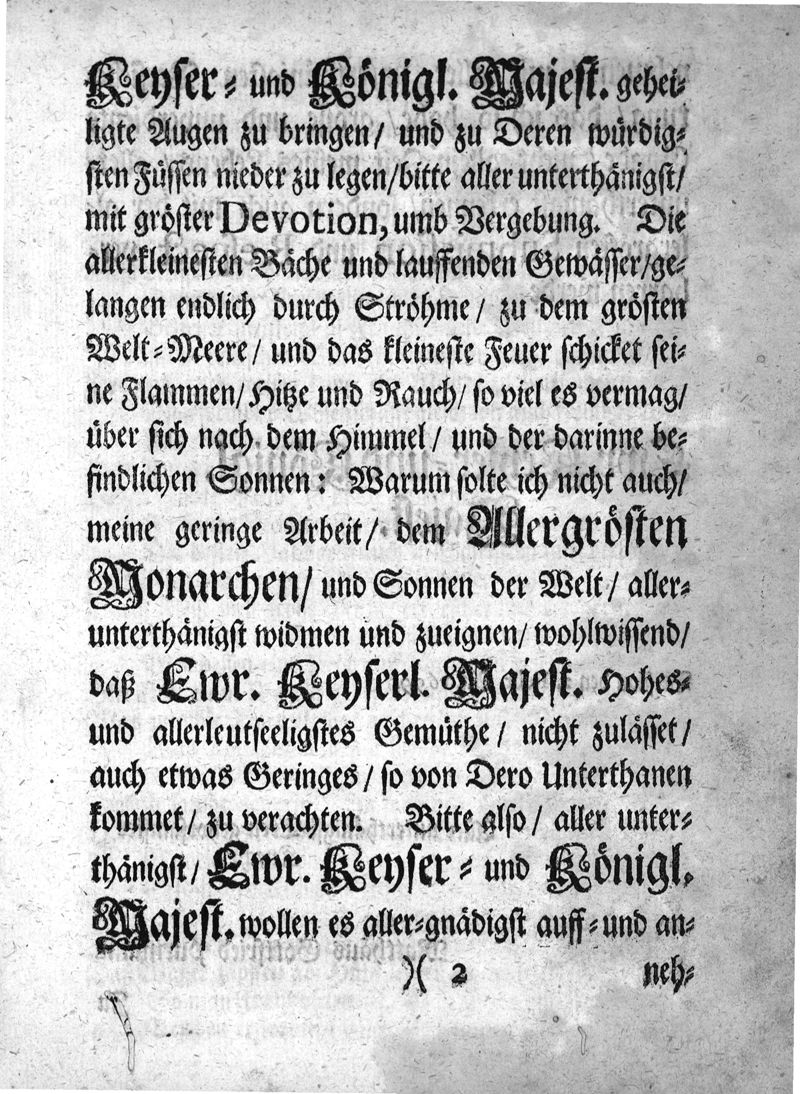 Keyser- und Königl. Majest. gehei-
ligte Augen zu bringen/ und zu Deren würdig-
sten Füssen nieder zu legen/bitte aller unterthänigst/
mit gröster Devotion, umb Vergebung. Die
allerkleinesten Bäche und lauffenden Gewässer/ge-
langen endlich durch Ströhme/ zu dem grösten
Welt-Meere/ und das kleineste Feuer schicket sei-
ne Flammen/ Hitze und Rauch/ so viel es vermag/
über sich nach dem Himmel/ und der darinne be-
findlichen Sonnen: Warum solte ich nicht auch/
meine geringe Arbeit/ dem Allergrösten
Monarchen/ und Sonnen der Welt/ aller-
unterthänigst widmen und zueignen/ wohlwissend/
daß Ewr. Keyserl. Majest. Hohes-
und allerleutseeligstes Gemüthe/ nicht zulässet/
auch etwas Geringes/ so von Dero Unterthanen
kommet/ zu verachten. Bitte also/ aller unter-
thänigst/ Ewr. Keyser- und Königl.
Majest. wollen es aller-gnädigst auff-und an-
)( 2 neh-